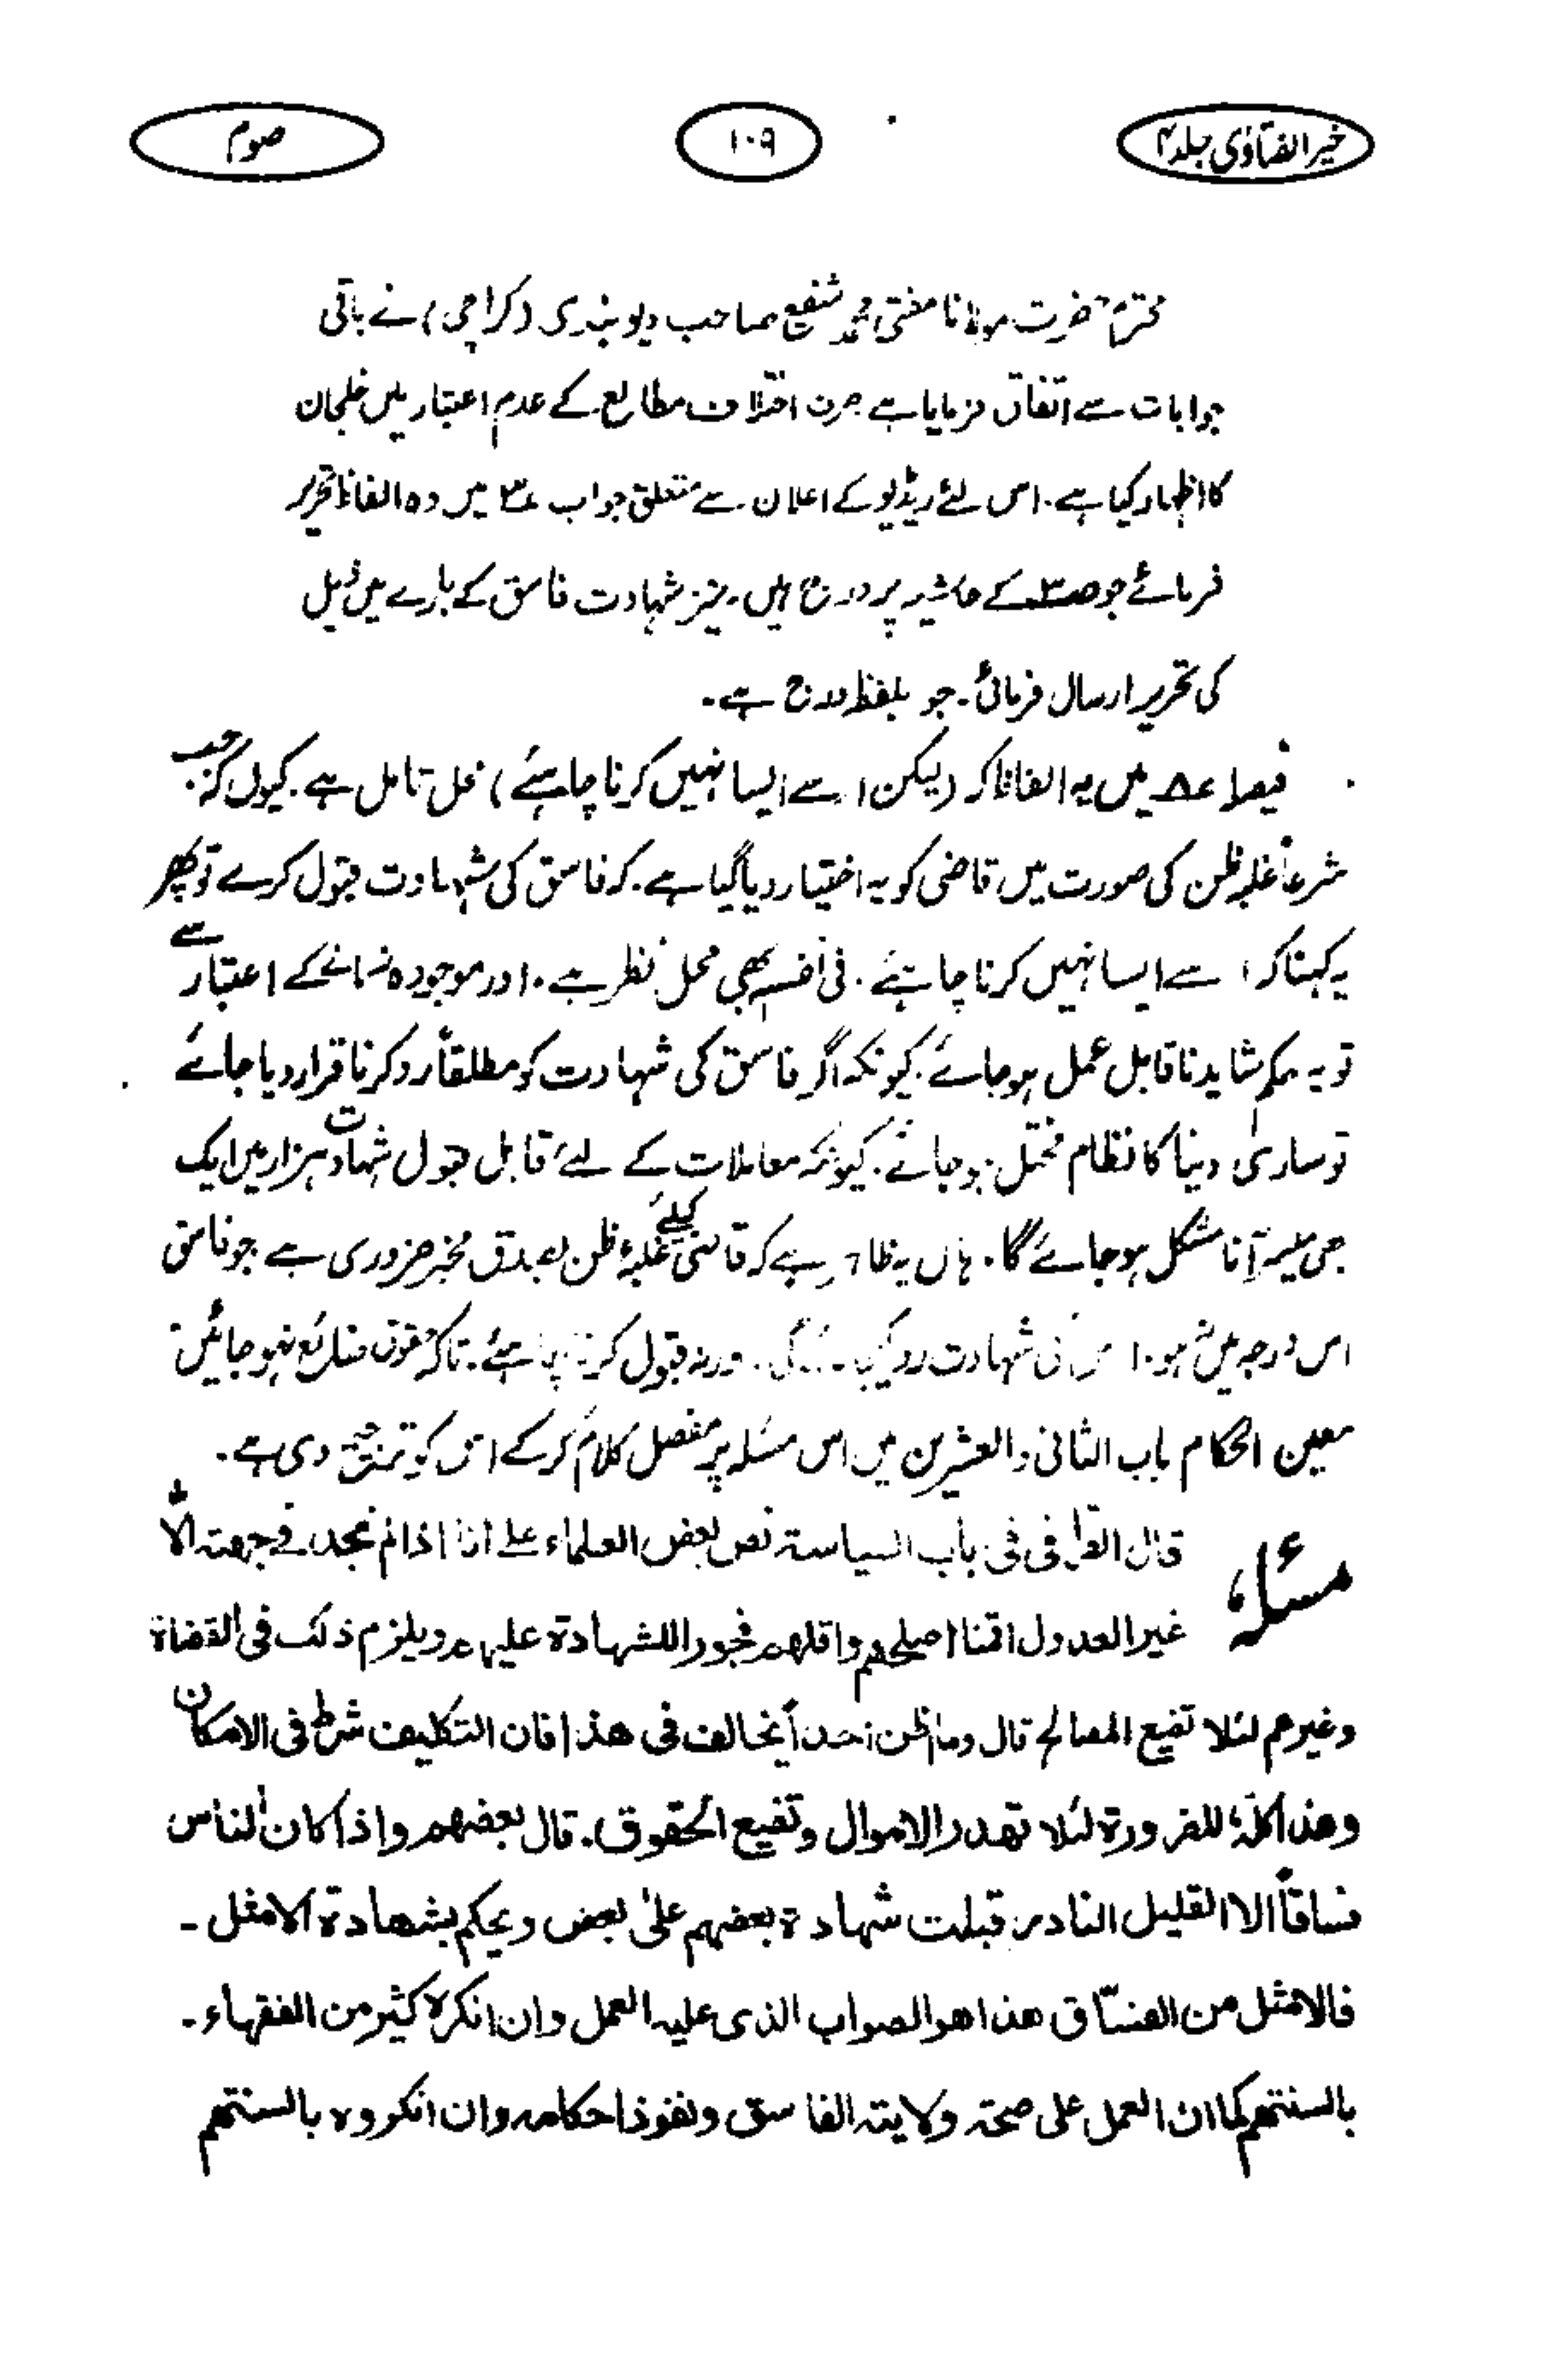 خیر الفتاوٰی جلد ۴
۱۰۹
صوم
محترم حضرت مولانا مفتی محمد شفیع صاحب دیوبندی (کراچی) نے باقی
جوابات سے اتفاق فرمایا ہے صرف اختلاف مطالع کے عدم اعتبار میں خلجان
کا اظہار کیا ہے۔ اس لئے ریڈیو کے اعلان سے متعلق جواب ۳؂ میں وہ الفاظ تحریر
فرمائے جو کے حاشیہ پر درج ہیں۔ نیز شہادت فاسق کے بارے میں ذیل
کی تحریر ارسال فرمائی۔ جو بلفظہ درج ہے۔
فیصلہ ۸ میں یہ الفاظ کہ (لیکن اسے ایسا نہیں کرنا چاہئے) محل تامل ہے۔ کیوں کہ جب
شرعاً غلبہ ظن کی صورت میں قاضی کو یہ اختیار دیا گیا ہے۔ کہ فاسق کی شہادت قبول کرے تو پھر
یہ کہنا کہ اسے ایسا نہیں کرنا چاہئے۔ فی نفسہٖ بھی محل نظر ہے۔ اور موجودہ زمانے کے اعتبار سے
تو یہ حکم شاید ناقابل عمل ہو جائے۔ کیونکہ اگر فاسق کی شہادت کو مطلقاً رد کرنا قرار دیا جائے
تو ساری دنیا کا نظام مختل ہو جائے۔ کیونکہ معاملات کے لئے قابل قبول شہادت ہزار میں ایک
بھی میسر آنا مشکل ہو جائے گا۔ ہاں یہ ظاہر ہے کہ قاضی کیلئے غلبۂ ظن بصدق مخبر ضروری ہے جو فاسق
اس درجہ میں نہ ہو۔ اس کی شہادت رد کی جائے گی۔ ورنہ قبول کرنا چاہئے۔ تاکہ حقوق ضائع نہ ہو جائیں۔
معین الحکام باب الثانی والعشرین میں اس مسئلہ پر مفصل کلام کر کے اسی کو ترجیح دی ہے۔
مسئلہ
قال القرافی فی باب السیاسۃ نص بعض العلماء علی انا اذا لم نجد فی جهۃ الا
غیر العدول اقمنا اصلحهم واقلهم فجورا للشهادۃ علیهم ویلزم ذلک فی القضاۃ
وغیرهم لئلا تضیع المصالح قال وما اظن احداً یخالف فی هذا فان التکلیف شرط فی الامکان
وهذا کلہٗ للضرورۃ لئلا تهدر الاموال وتضیع الحقوق۔ قال بعضهم واذا کان الناس
فساقاً الا القلیل النادر قبلت شهادۃ بعضهم علیٰ بعض ویحکم بشهادۃ الامثل۔
فالامثل من الفسّاق هذا هو الصواب الذی علیہ العمل وان انکرہ کثیر من الفقهاء۔
بالسنتهم کما ان العمل علی صحۃ ولایۃ الفاسق ونفوذ احکامہ وان انکروہ بالسنتهم